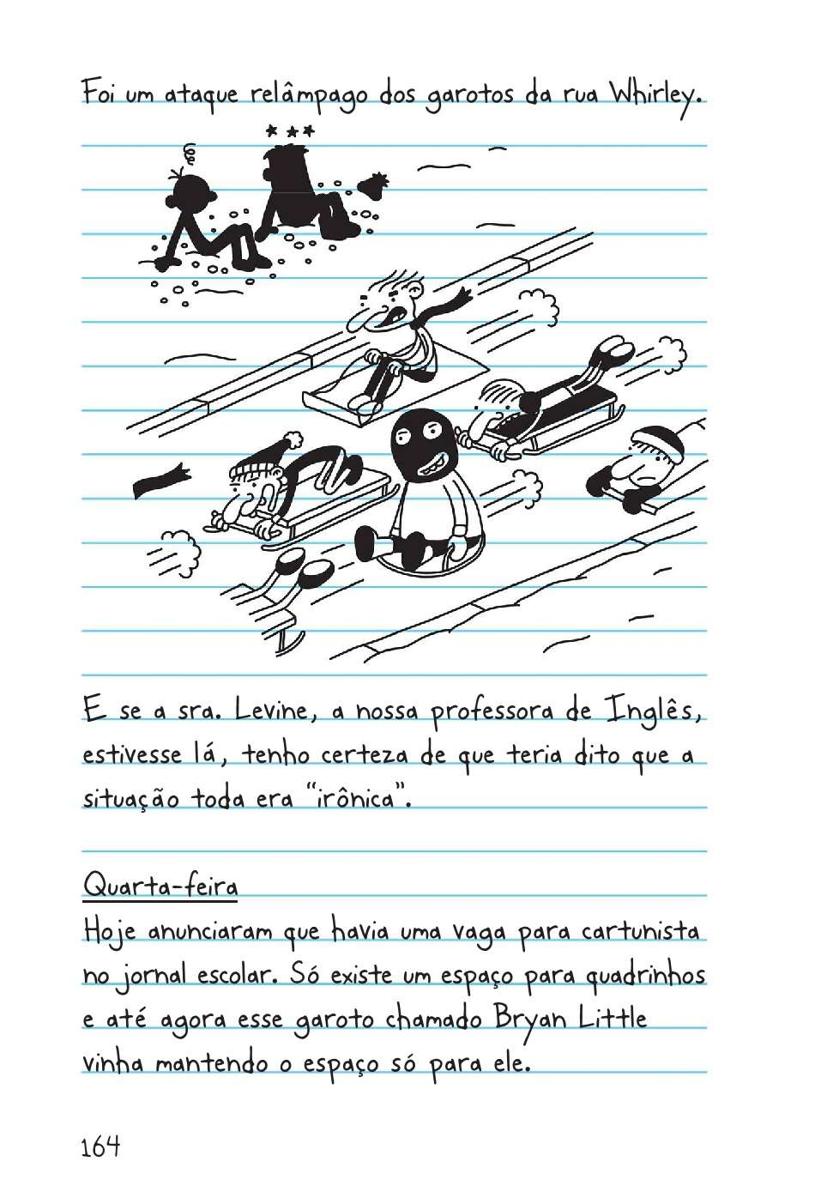 Foi um ataque relâmpago dos garotos da rua Whirley.
E se a sra. Levine, a nossa professora de Inglês,
estivesse lá, tenho certeza de que teria dito que a
situação toda era “irônica”.
Quarta-feira
Hoje anunciaram que havia uma vaga para cartunista
no jornal escolar. Só existe um espaço para quadrinhos
e até agora esse garoto chamado Bryan Little
vinha mantendo o espaço só para ele.
164